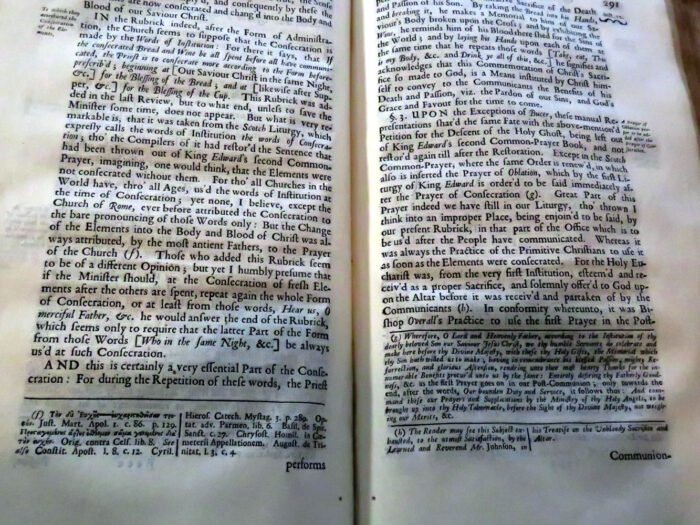 are now consecrated and chang'd into the Body and
Blood of our Saviour Christ.
IN the Rubrick indeed, after the Form of Administra-
tion, the Church seems to suppose that the Consecration is
made by the Words of Institution: For there it says, that If
the consecrated Bread and Wine be all spent before all have commu-
nicated, the Priest is to consecrate more according to the Form before-
prescrib'd; beginning at [Our Saviour Christ in the same Night,
&c.] for the Blessing of the Bread; and at [likewise after Sup-
per, &c.] for the Blessing of the Cup. This Rubrick was ad-
ded in the last Review, but to what end, unless to save the
Minister some time, does not appear. But what is very re-
markable is, that it was taken from the Scotch Liturgy, which
expresly calls the words of Institution the words of Consecra-
tion; tho' the Compilers of it had restor'd the Sentence that
had been thrown out of King Edward's second Common
Prayer, imagining, one would think, that the Elements were
not consecrated without them. For tho' all Churches in the
World have, thro' all Ages, us'd the words of Institution at
the time of Consecration; yet none, I believe, except the
Church of Rome, ever before attributed the Consecration to
the bare pronouncing of those Words only: But the Change
of the Elements into the Body and Blood of Christ was al-
ways attributed, by the most antient Fathers, to the Prayer
of the Church (f). Those who added this Rubrick seem
to be of a different Opinion; but yet I humbly presume that
if the Minister should, at the Consecration of fresh Ele-
ments after the others are spent, repeat again the whole Form
of Consecration, or at least from those Words, Hear us, O
merciful Father, &c. he would answer the end of the Rubrick,
which seems only to require that the latter Part of the Form
from those Words [Who in the same Night, &c.] be always
us'd at such Consecration.
AND this is certainly a very essential Part of the Conse-
cration: For during the Repetition of these words, the Priest
Just. Mart. Apol. 1. c. 86. p. 129.
Orig. contra Celf. lib. 8. See
also Constit. Apost. l. 8. c. 12. Cyril.
Hierof. Catech. Mystag. 3. p. 289. Op-
tat. adv. Parmen. lib. 6. Basil. de Spi.
Sanct. c. 27. Chrysost. Homil. in Cœ-
meterii Appellationem. August. de Tri-
nitat. l. 3. c. 4
performs
291
Passion of his Son. By taking the
and breaking it, he makes a Memorial to
viour's Body broken upon the Cross; and by exhibiting the
Wine, he reminds him of his Blood there shed for the Sins of
the World; and by laying his Hands upon each of them at
the same time that he repeats those words [Take, eat, This
is my Body, &c. and Drink ye all of this, &c.] he signifies and
acknowledges that this Commemoration of Christ's Sacri-
fice so made to God, is a Means instituted by Christ him-
self to convey to the Communicants the Benefits of his
Death and Passion, viz. the Pardon of our Sins, and God's
Grace and Favour for the time to come.
§. 3. UPON the Exceptions of Bucer, these manual Re-
presentations shar'd the same Fate with the above-mention'd
Petition for the Descent of the Holy Ghost, being left out
of King Edward's second Common-Prayer Book, and not
restor'd again till after the Restoration. Except in the Scotch
Common-Prayer, where the same Order is renew'd, in which
also is inserted the Prayer of Oblation, which by the first Li-
turgy of King Edward is order'd to be said immediately af-
ter the Prayer of Consecration (g). Great Part of this
Prayer indeed we have still in our Liturgy, tho' thrown I
think into an improper Place, being enjoin'd to be said, by
our present Rubrick, in that part of the Office which is to
be us'd after the People have communicated. Whereas it
was always the Practice of the Primitive Christians to use it
as soon as the Elements were consecrated. For the Holy Eu-
charist was, from the very first Institution, esteem'd and re-
ceiv'd as a proper Sacrifice, and solemnly offer'd to God up-
on the Altar before it was receiv'd and partaken of by the
Communicants (h). In conformity whereunto, it was Bi-
shop Overall's Practice to use the first Prayer in the Post-
(g) Wherefore, O Lord and Heavenly Father, according to the Institution of thy
dearly beloved Son our Saviour Jesus Christ, we thy humble Servants do celebrate and
make here before thy Divine Majesty, with these thy Holy Gifts, the Memorial which
thy Son hath willed us to make, having in remembrance his blessed Passion, mighty Re-
surrection, and glorious Ascension, rendring unto thee most hearty Thanks for the in-
numerable Benefits procur'd unto us by the same: Entirely desiring thy Fatherly Good-
ness, &c. as the first Prayer goes on in our Post-Communion; only towards the
end, after the words, Our bounden Duty and Service, it follows thus: And com-
mand these our Prayers and Supplications by the Ministry of thy Holy Angels, to be
brought up into thy Holy Tabernacle, before the Sight of thy Divine Majesty, not weigh-
ing our Merits, &c.
(h) The Reader may see this Subject ex-
hausted, to the utmost Satisfaction, by the
Learned and Reverend Mr. Johnson, in
his Treatise on the Unbloody Sacrifice and
Altar.
Communion-